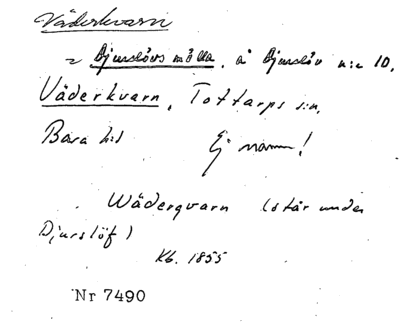 Väderkvarn
= Djurslövs mölla, å Djurslöv n:o 10,
Väderkvarn, Tottarps s:n,
Bara h:d Ej namn!
Wäderqvarn (står under
Djurslöf)
Kb. 1855
Nr 7490